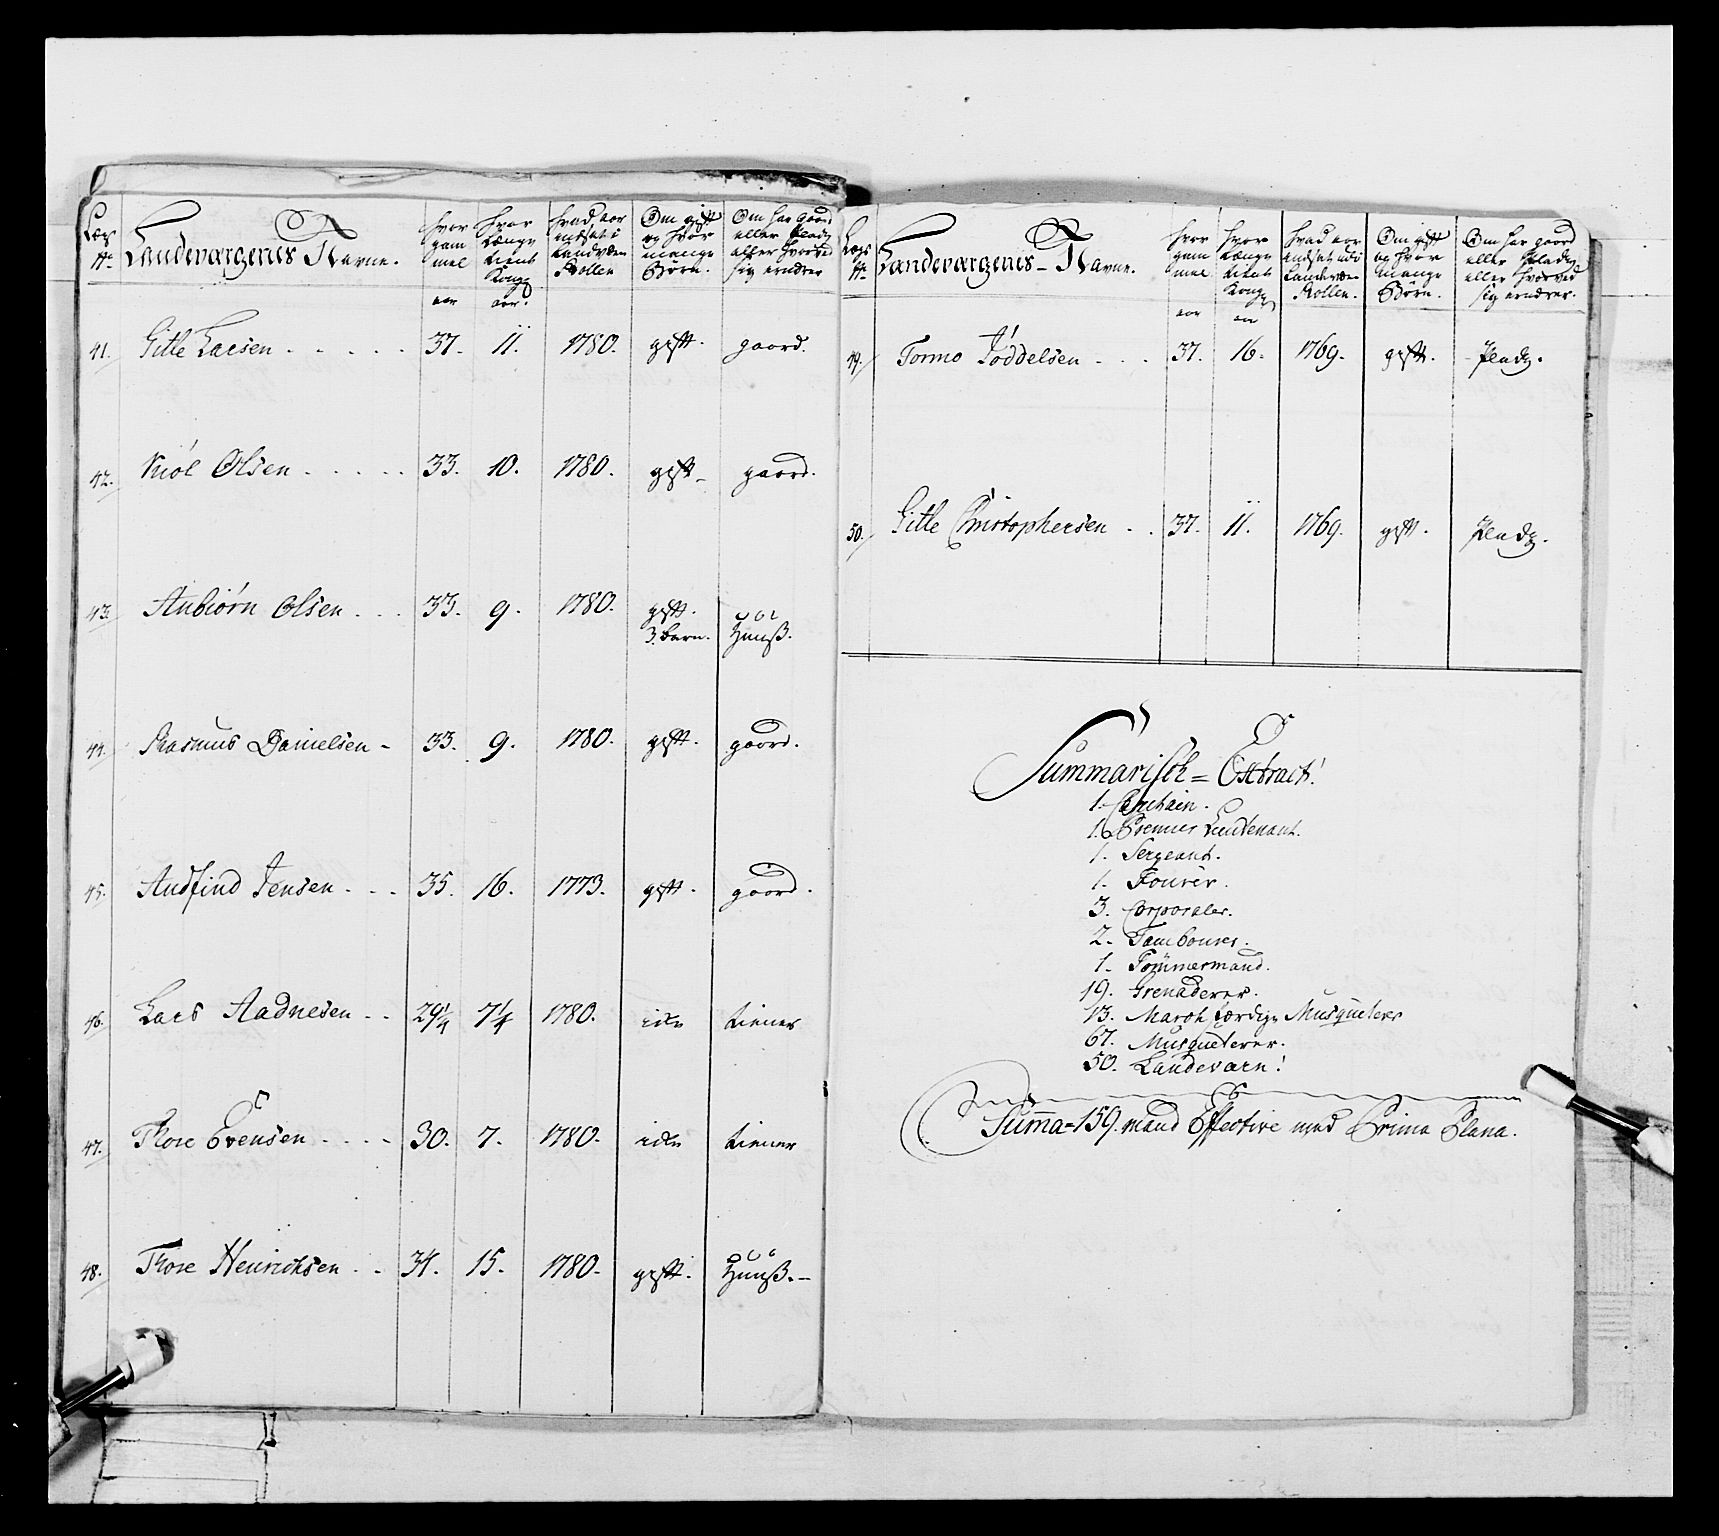 Læg No. Landeværgenes Navne. hvor gammel aar hvor længe tient Kong aar. hvad aar indsat i Landværn Rollen Om gift og hvor mange Børn. Om har gaard eller Plads eller hvorved sig ernærer
41. Gitle Larsen 37. 11. 1780. gift. gaard.
42. Kiøl Olsen 33. 10. 1780. gift gaard.
43. Anbiørn Olsen 33. 9. 1780. gift. 3. barn. Huuß.
44. Rasmus Danielsen 33. 9. 1780. gift. gaard.
45. Andfind Jensen 35. 16. 1773. gift. gaard.
46. Lars Aadnesen 29¼ 7¼ 1780. icke tiener
47. Thore Evensen 30. 7. 1780. icke tiener
48. Thore Henrichsen 34. 15. 1780. gift. Huuß.
Læg No. Landeværgenes Navne. hvor gammel aar hvor længe tient Kong aar hvad aar indsat udi Landværn Rollen. Om gift og hvor mange Børn. Om har gaard eller Plads eller hvorved sig ernærer.
49. Tormo Jøddelsen 37. 16. 1769. gift. Plads.
50. Gitle Christophersen 37. 11. 1769. gift. Plads.
Summarisch Extract!
1. Captain.
1. Premier Lieutenant.
1. Sergeant.
1. Fourer.
3. Corporaler.
2. Tambourer.
1. Tømmermand.
19. Grenaderer.
13. March færdige Musqueterer
67. Musqueterer.
50. Landeværn!
Summa 159. mand Effective med Prima Plana.